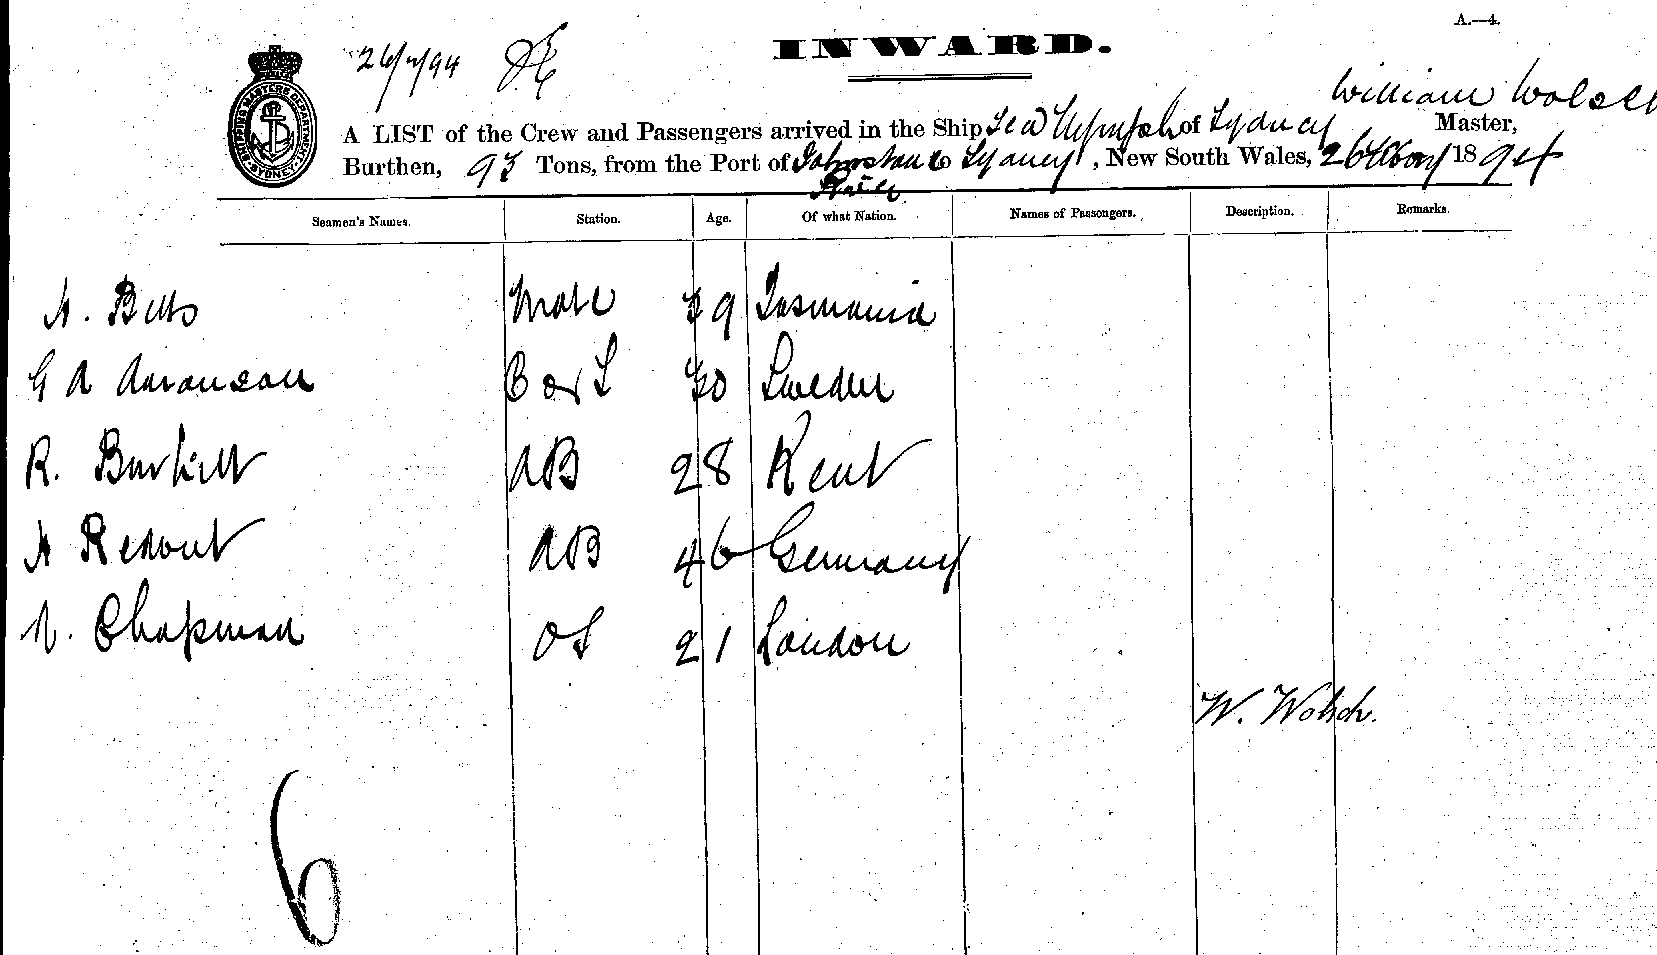 A.—4.
INWARD.
SHIPPING MASTERS DEPARTMENT SYDNEY
William
A LIST of the Crew and Passengers arrived in the Ship Sea Nymph of Sydney Master,
Burthen, 93 Tons, from the Port of Johnstone to Sydney, New South Wales, 26 1894
River
Seamen's Names. Station. Age. Of what Nation. Names of Passengers. Description. Remarks.
A. Betts Mate 39 Tasmania
G A Aaronson C or S 30 Sweden
R. AB 28 Kent
A AB 46 Germany
Chapman OS 21 London
W.
6